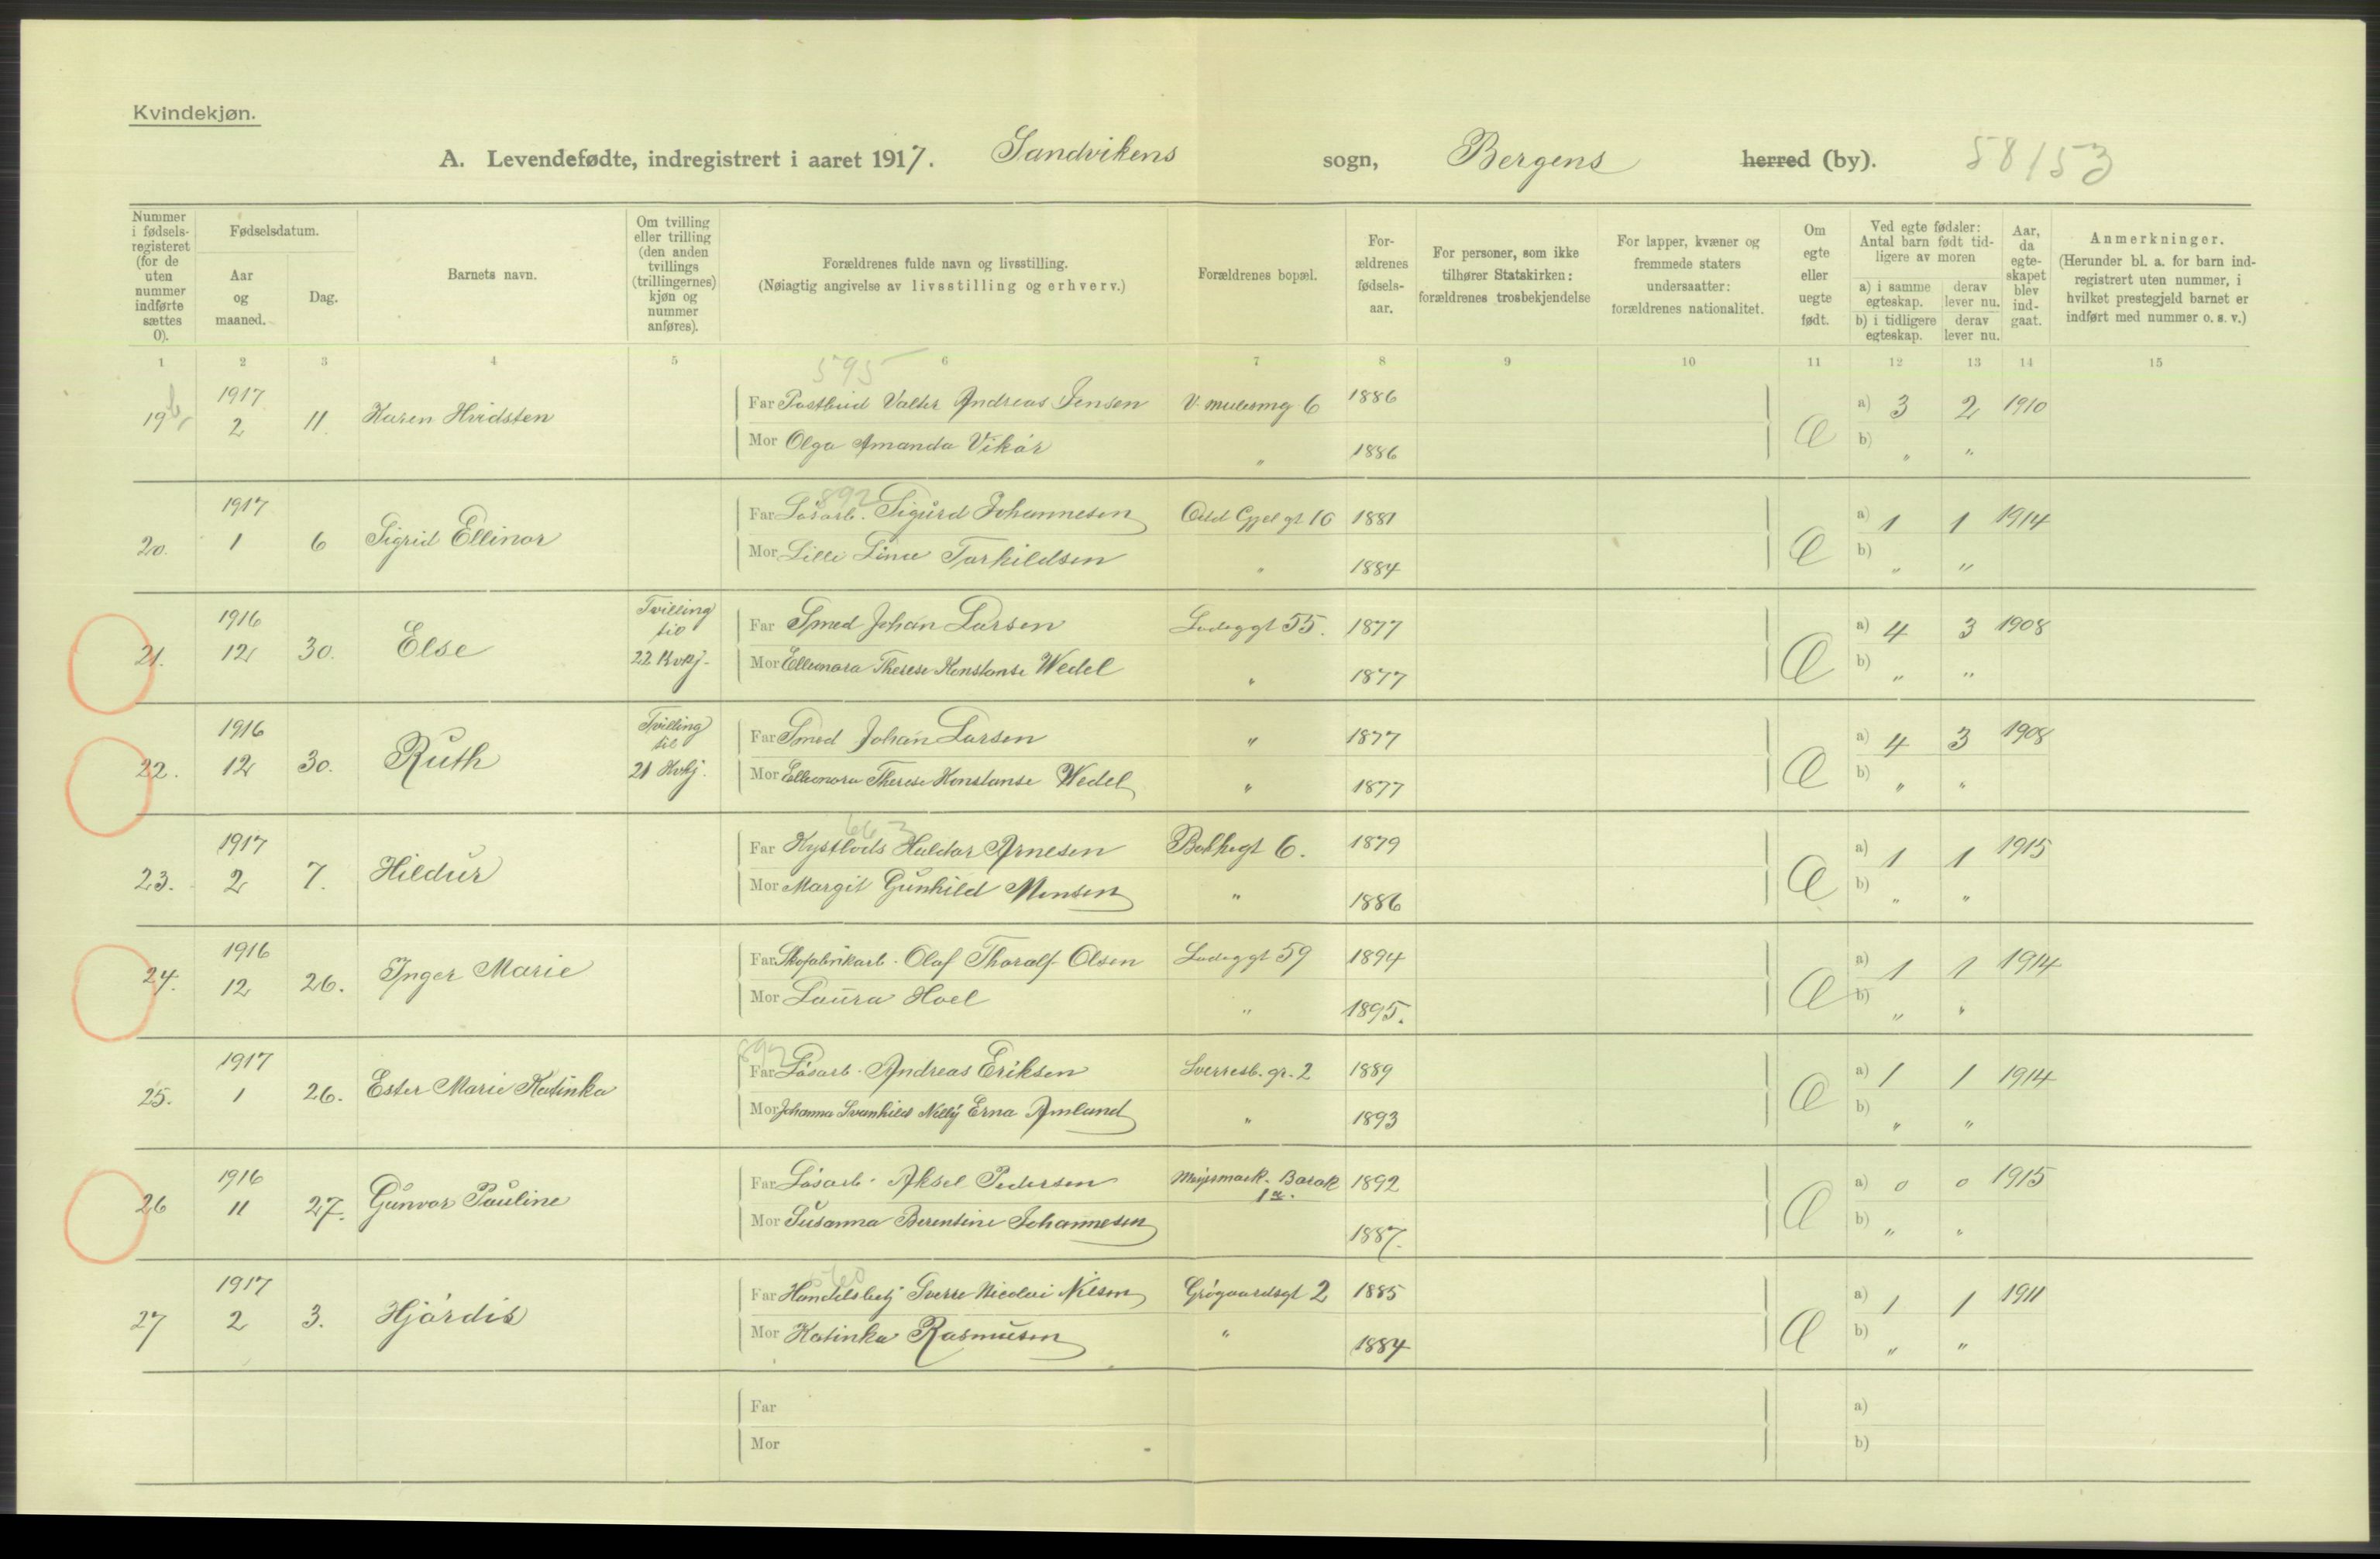 Kvindekjøn.
A. Levendefødte, indregistrert i aaret 1917. Sandvikens sogn, Bergens herred (by). 58/53
Nummer i fødsels-registeret (for de uten nummer indførte sættes 0).
Fødselsdatum.
Aar og maaned.
Dag.
Barnets navn.
Om tvilling eller trilling (den anden tvillings (trillingernes) kjøn og nummer anføres).
Forældrenes fulde navn og livsstilling.
(Nøiagtig angivelse av livsstilling og erhverv.)
Forældrenes bopæl.
For-ældrenes fødsels-aar.
For personer, som ikke tilhører Statskirken: forældrenes trosbekjendelse
For lapper, kvæner og fremmede staters undersaatter: forældrenes nationalitet.
Om egte eller uegte født.
Ved egte fødsler: Antal barn født tid-ligere av moren
a) i samme egteskap.
derav lever nu.
b) i tidligere egteskap.
derav lever nu.
Aar, da egte-skapet blev ind-gaat.
Anmerkninger.
(Herunder bl. a. for barn ind-registrert uten nummer, i hvilket prestegjeld barnet er indført med nummer o. s. v.)
1 2 3 4 5 6 7 8 9 10 11 12 13 14 15
595
19 1917 2 11 Karen Hvidsten Far Postbud Valter Andreas Jensen 6 1886 a) 3 2 1910
Mor Olga Amanda Vikør " 1886 b) " "
892
20. 1917 1 6 Sigrid Ellinor Far Løsarb. Sigurd Johannesen 1881 a) 1 1 1914
Mor Lille Lina Torkildsen " 1884 b) " "
21. 1916 12 30. Else Tvilling til 22 Kvkj. Far Smed Johan Larsen Ladeggt 55. 1877 a) 4 3 1908
Mor Elleonora Therese Konstanse Wedel " 1877 b) " "
22. 1916 12 30. Ruth Tvilling til 21 Kvkj. Far Smed Johan Larsen " 1877 a) 4 3 1908
Mor Elleonora Therese Konstanse Wedel " 1877 b) " "
663
23. 1917 2 7. Hildur Far Kystlods Haldor Arnesen Bakkegt 6. 1879 a) 1 1 1915
Mor Margit Gunhild Monsen " 1886 b) " "
24. 1916 12 26. Inger Marie Far Skofabrikarb. Olaf Thoralf Olsen Ladeggt 59 1894 a) 1 1 1914
Mor Laura Hoel " 1895. b) " "
892
25. 1917 1 26. Ester Marie Katinka Far Løsarb. Andreas Eriksen Sverresb. gr. 2 1889 a) 1 1 1914
Mor Johanna Svanhild Nelly Erna Amland " 1893 b) " "
26 1916 11 27. Gunvor Pauline Far Løsarb. Aksel Pedersen Barak 1 1892 a) 0 0 1915
Mor Susanna Berentine Johannesen 1887. b) " "
27 1917 2 3. Hjørdis Far Handelsbetj Sverre Nicolai Nilsen Grøgaardsgt 2 1885 a) 1 1 1911
Mor Katinka Rasmusen " 1884 b) " "
Far a)
Mor b)